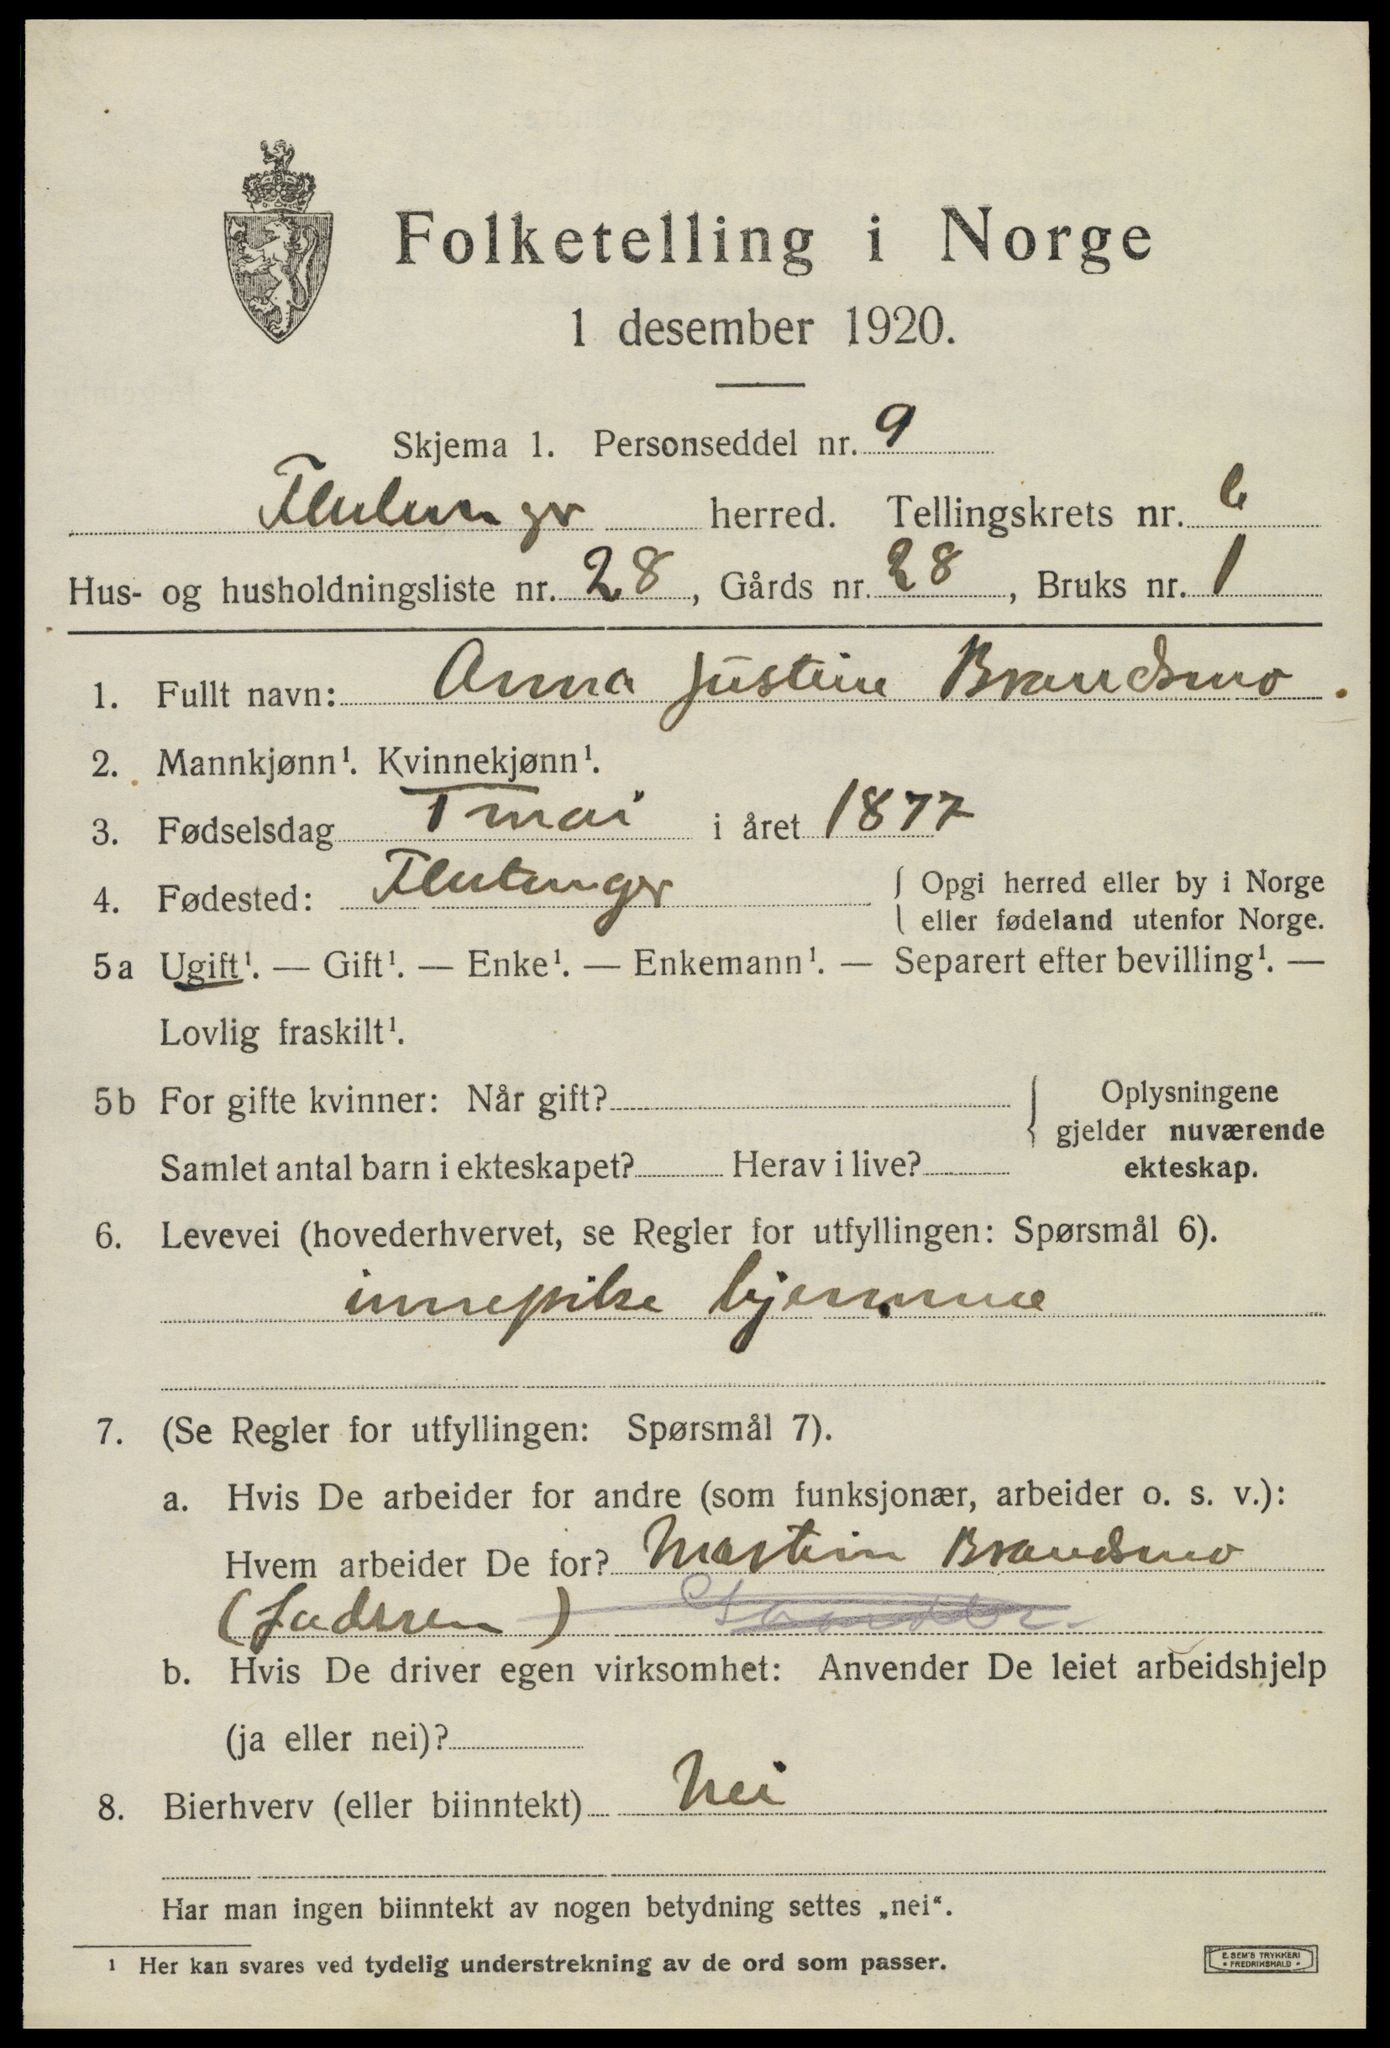 Folketelling i Norge
1 desember 1920.
Skjema 1. Personseddel nr. 9
herred. Tellingskrets nr. 6
Hus- og husholdningsliste nr. 28, Gårds nr. 28, Bruks nr. 1
1. Fullt navn: Anna Justine Brandsmo.
2. Mannkjønn¹. Kvinnekjønn¹.
3. Fødselsdag mai i året 1877
4. Fødested: { Opgi herred eller by i Norge
eller fødeland utenfor Norge.
5a Ugift¹. — Gift¹. — Enke¹. — Enkemann¹. — Separert efter bevilling¹. —
Lovlig fraskilt¹.
5b For gifte kvinner: Når gift? { Oplysningene
gjelder nuværende
ekteskap.
Samlet antal barn i ekteskapet? Herav i live?
6. Levevei (hovederhvervet, se Regler for utfyllingen: Spørsmål 6).
innepike hjemme
7. (Se Regler for utfyllingen: Spørsmål 7).
a. Hvis De arbeider for andre (som funksjonær, arbeider o. s. v.):
Hvem arbeider De for? Martin Brandsmo
b. Hvis De driver egen virksomhet: Anvender De leiet arbeidshjelp
(ja eller nei)?
8. Bierhverv (eller biinntekt) Nei
Har man ingen biinntekt av nogen betydning settes „nei“.
¹ Her kan svares ved tydelig understrekning av de ord som passer.
E. SEM'S TRYKKERI
• FREDRIKSHALD •